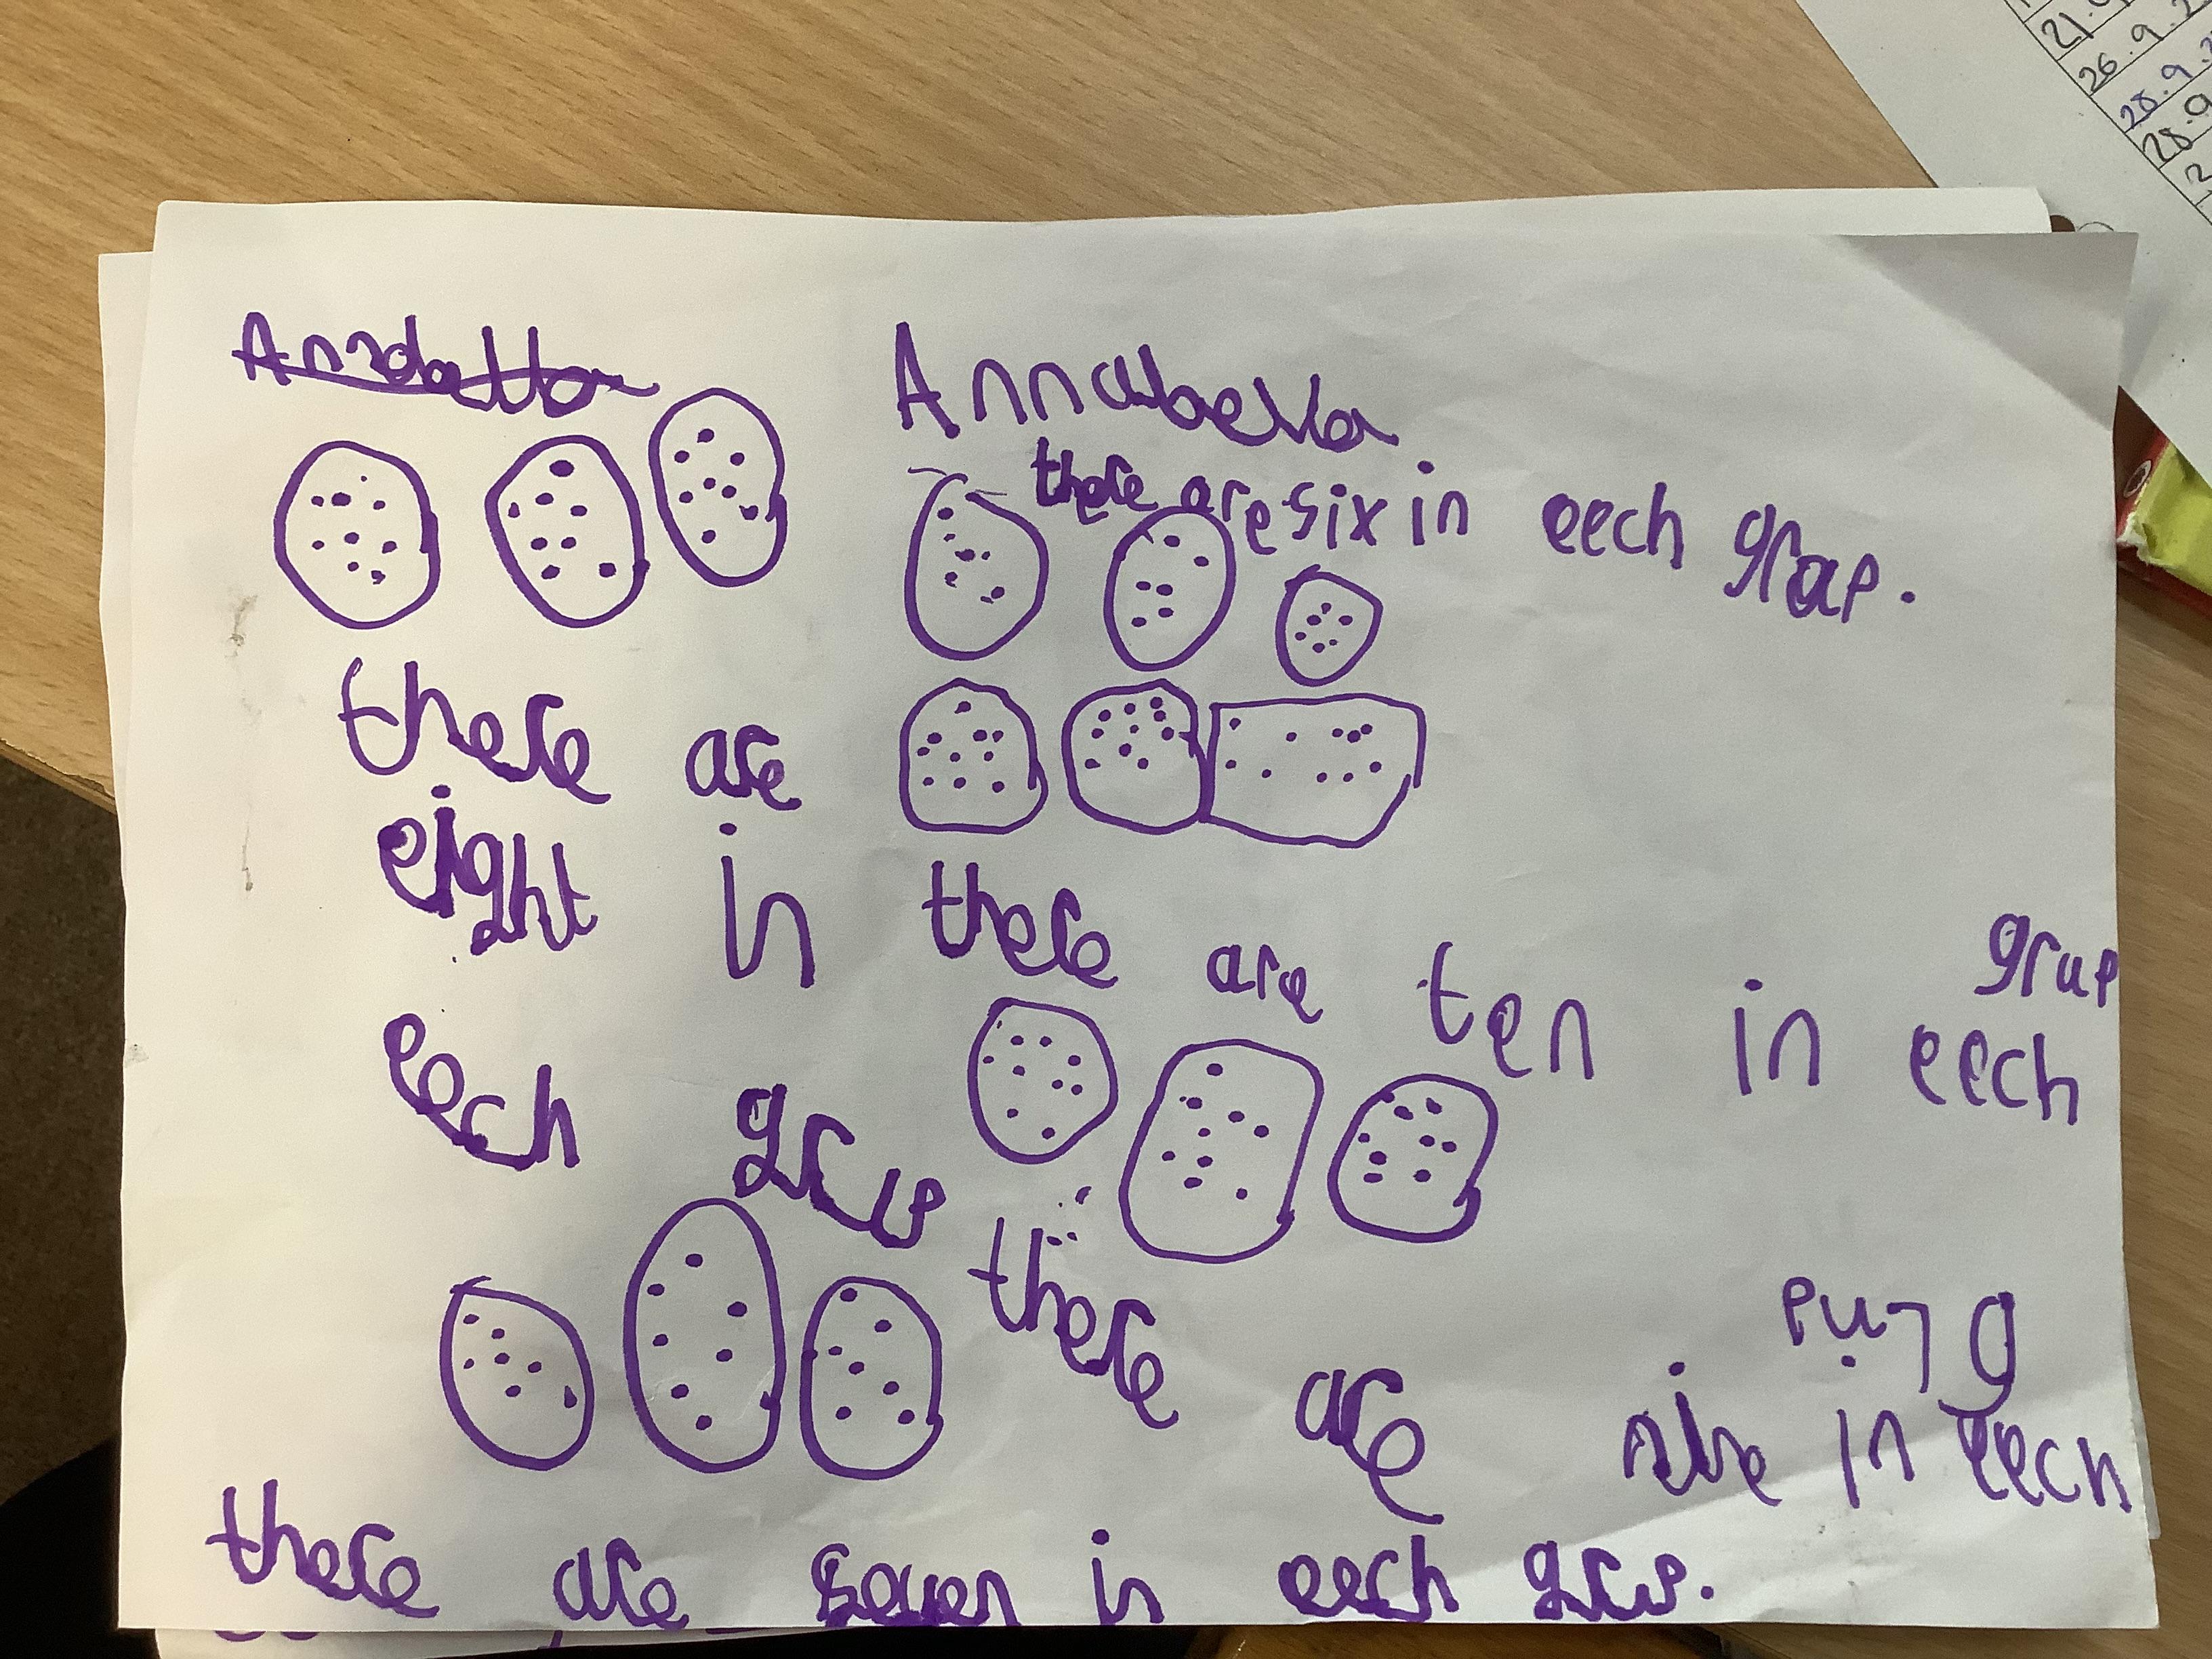 Annabella
there are six in eech grap.
there are
eight in
eech grup
there are ten in eech
grup
there are nine in eech
grup
there are seven in eech grup.
21.9
26.9.2
28.9.2
28.9
2